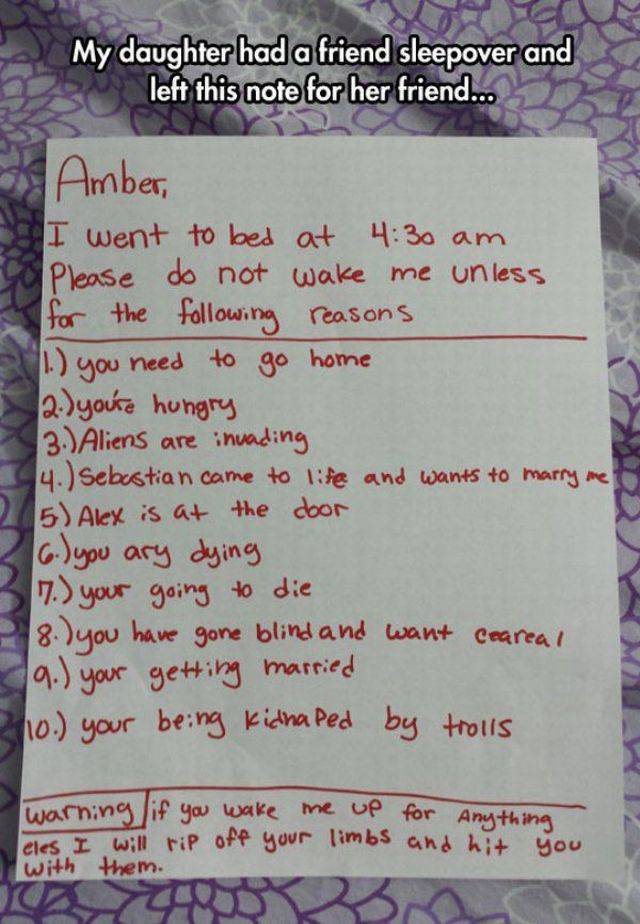 My daughter had a friend sleepover and
left this note for her friend...
Amber,
I went to bed at 4:30 am
Please do not wake me unless
for the following reasons
1.) you need to go home
2.) you're hungry
3.) Aliens are invading
4.) Sebastian came to life and wants to marry me
5) Alex is at the door
6.) you ary dying
7.) your going to die
8.) you have gone blind and want ceareal
9.) your getting married
10.) your being kidnaped by trolls
warning if you wake me up for Anything
eles I will rip off your limbs and hit you
with them.